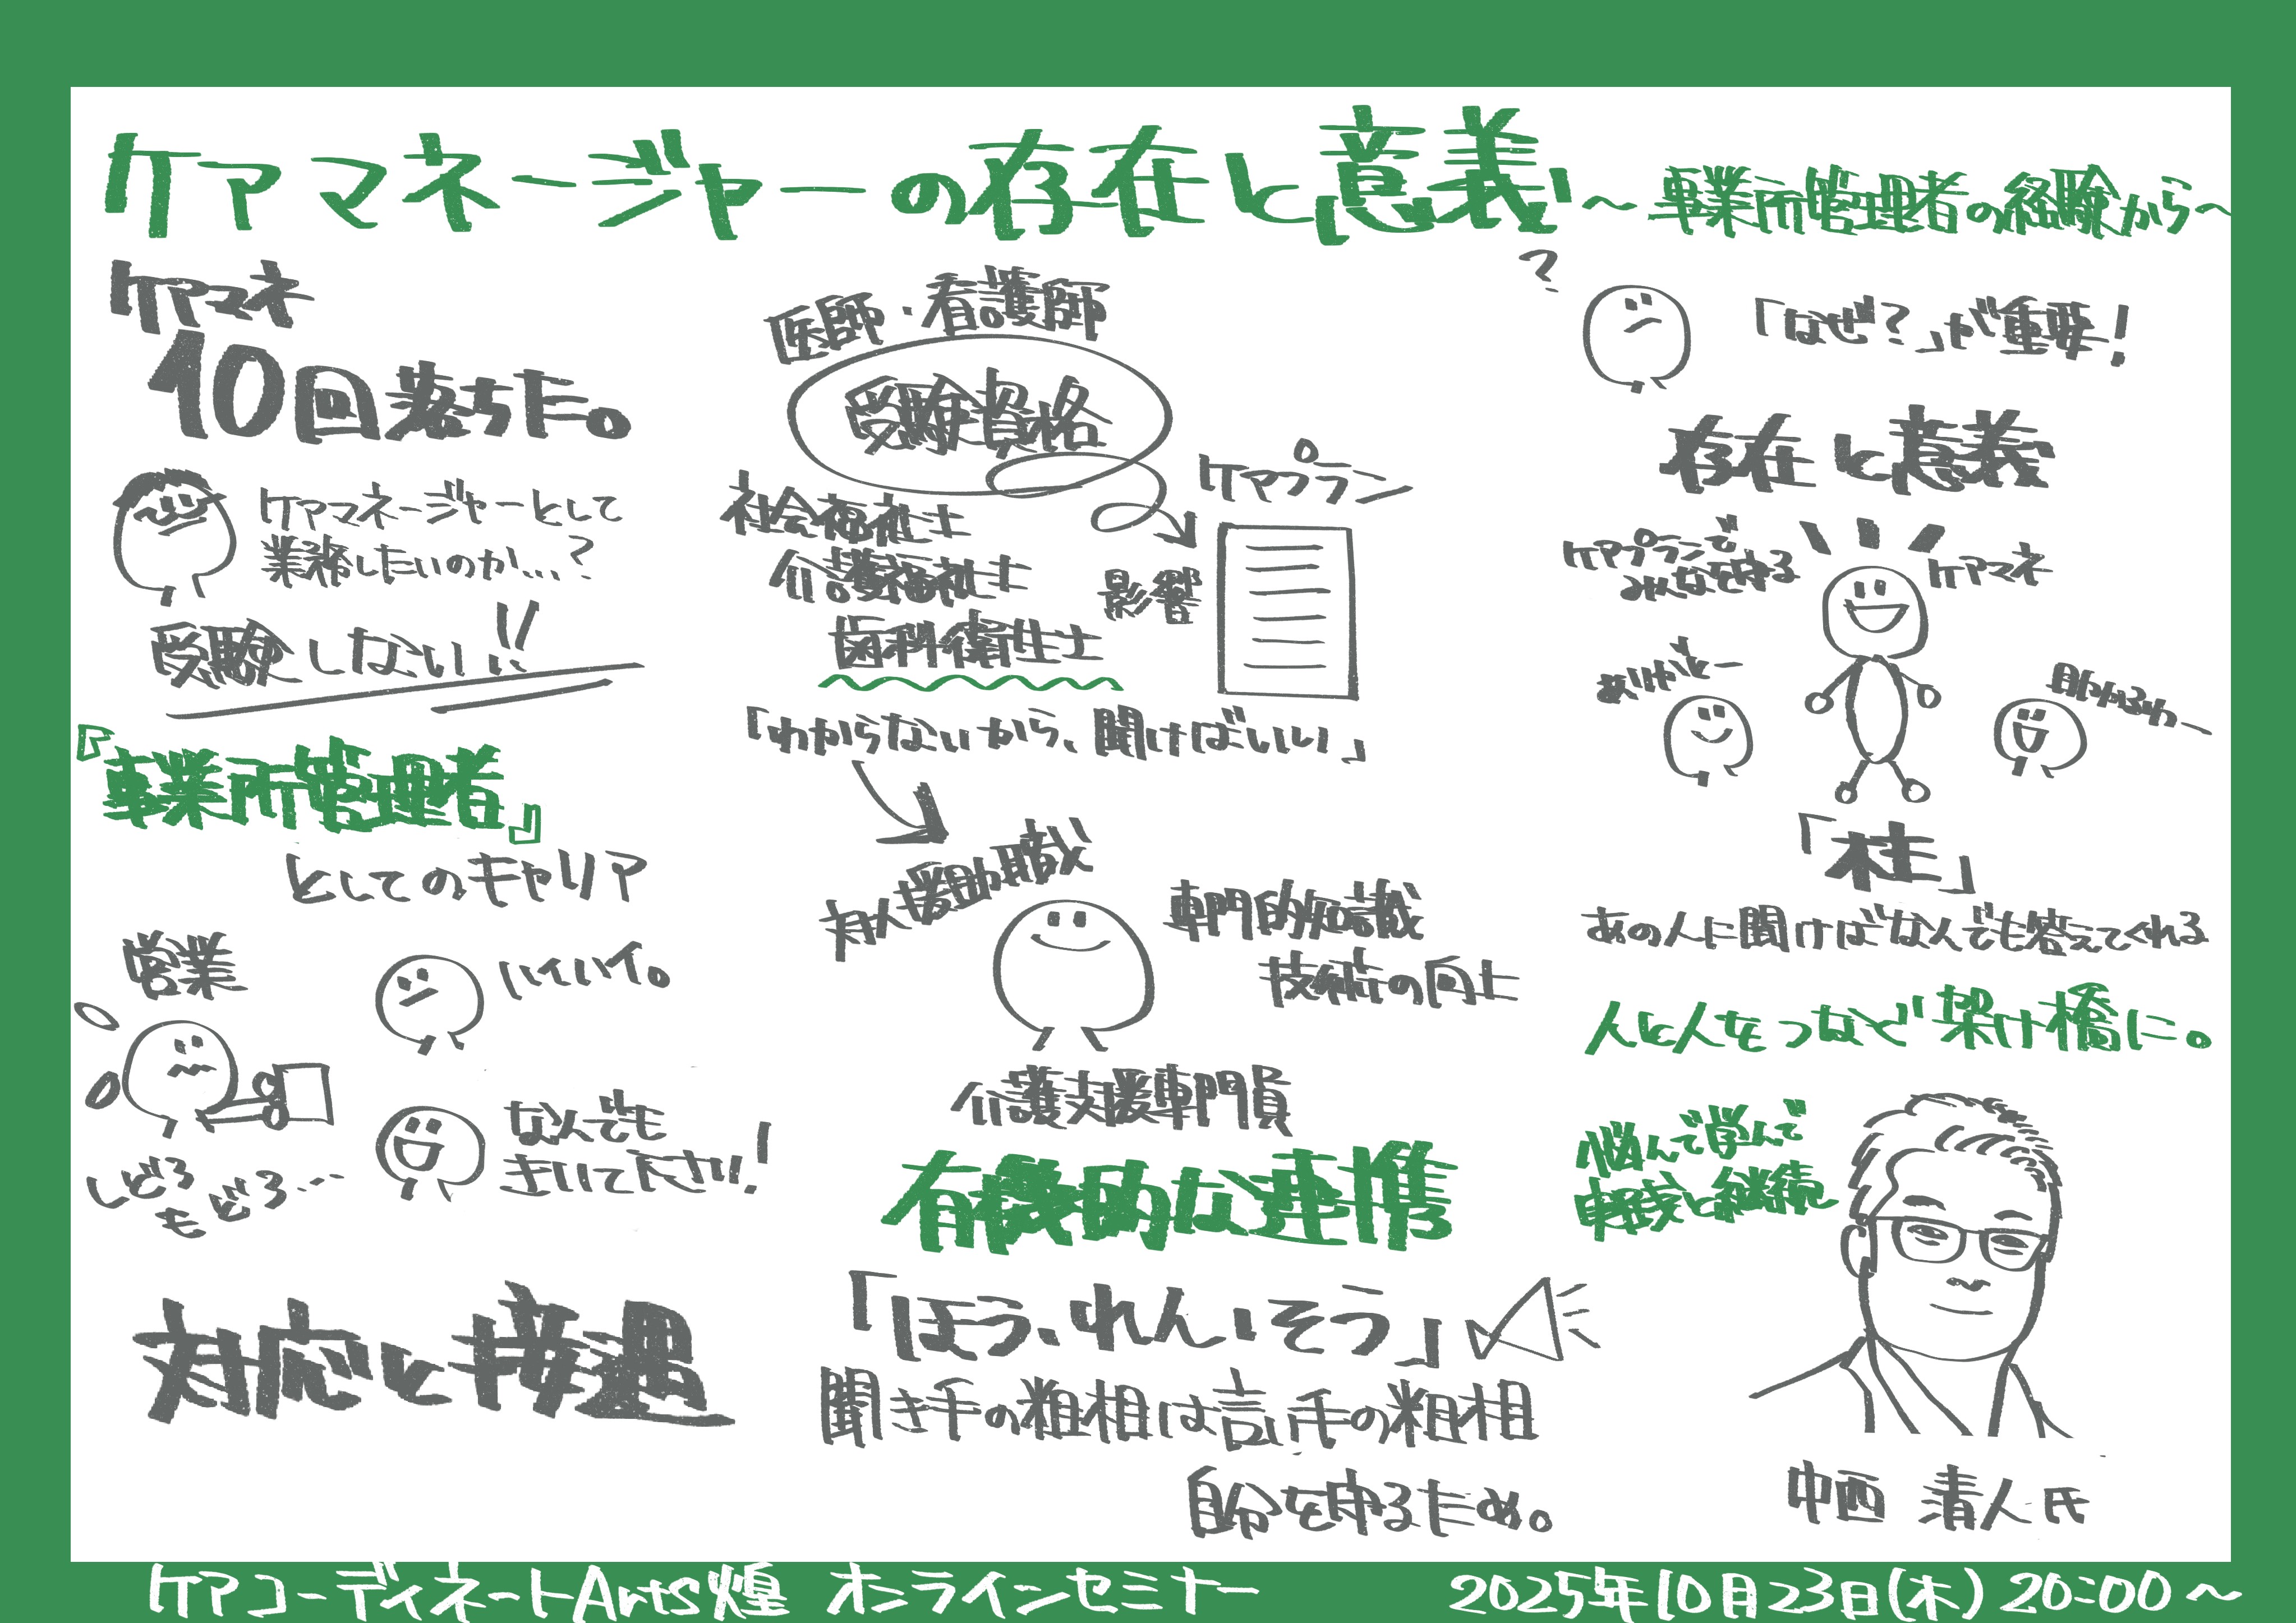 ケアマネージャーの存在と意義 ～事業所管理者の経験から～
ケアマネ
10回落ちた。
ケアマネージャーとして
業務したいのか…？
受験しない!!
『事業所管理者』
としてのキャリア
営業
しどろ
もどろ…
ハイハイ。
なんでも
きいて下さい！
対応と接遇
医師・看護師
受験資格
社会福祉士
介護福祉士
歯科衛生士
影響
ケアプラン
「わからないから、聞けばいい」
対人援助職
専門的知識
技術の向上
介護支援専門員
有機的な連携
「ほう、れん、そう」
聞き手の粗相は言い手の粗相
自分を守るため。
?
「なぜ？」が重要！
存在と意義
ケアプランで
みんなを守る
ケアマネ
ありがとー
助かるわー
「柱」
あの人に聞けばなんでも答えてくれる
人と人をつなぐ架け橋に。
悩んで学んで
実践と継続
中西 清人氏
ケアコーディネートArts煌 オンラインセミナー
2025年10月23日(木) 20:00～